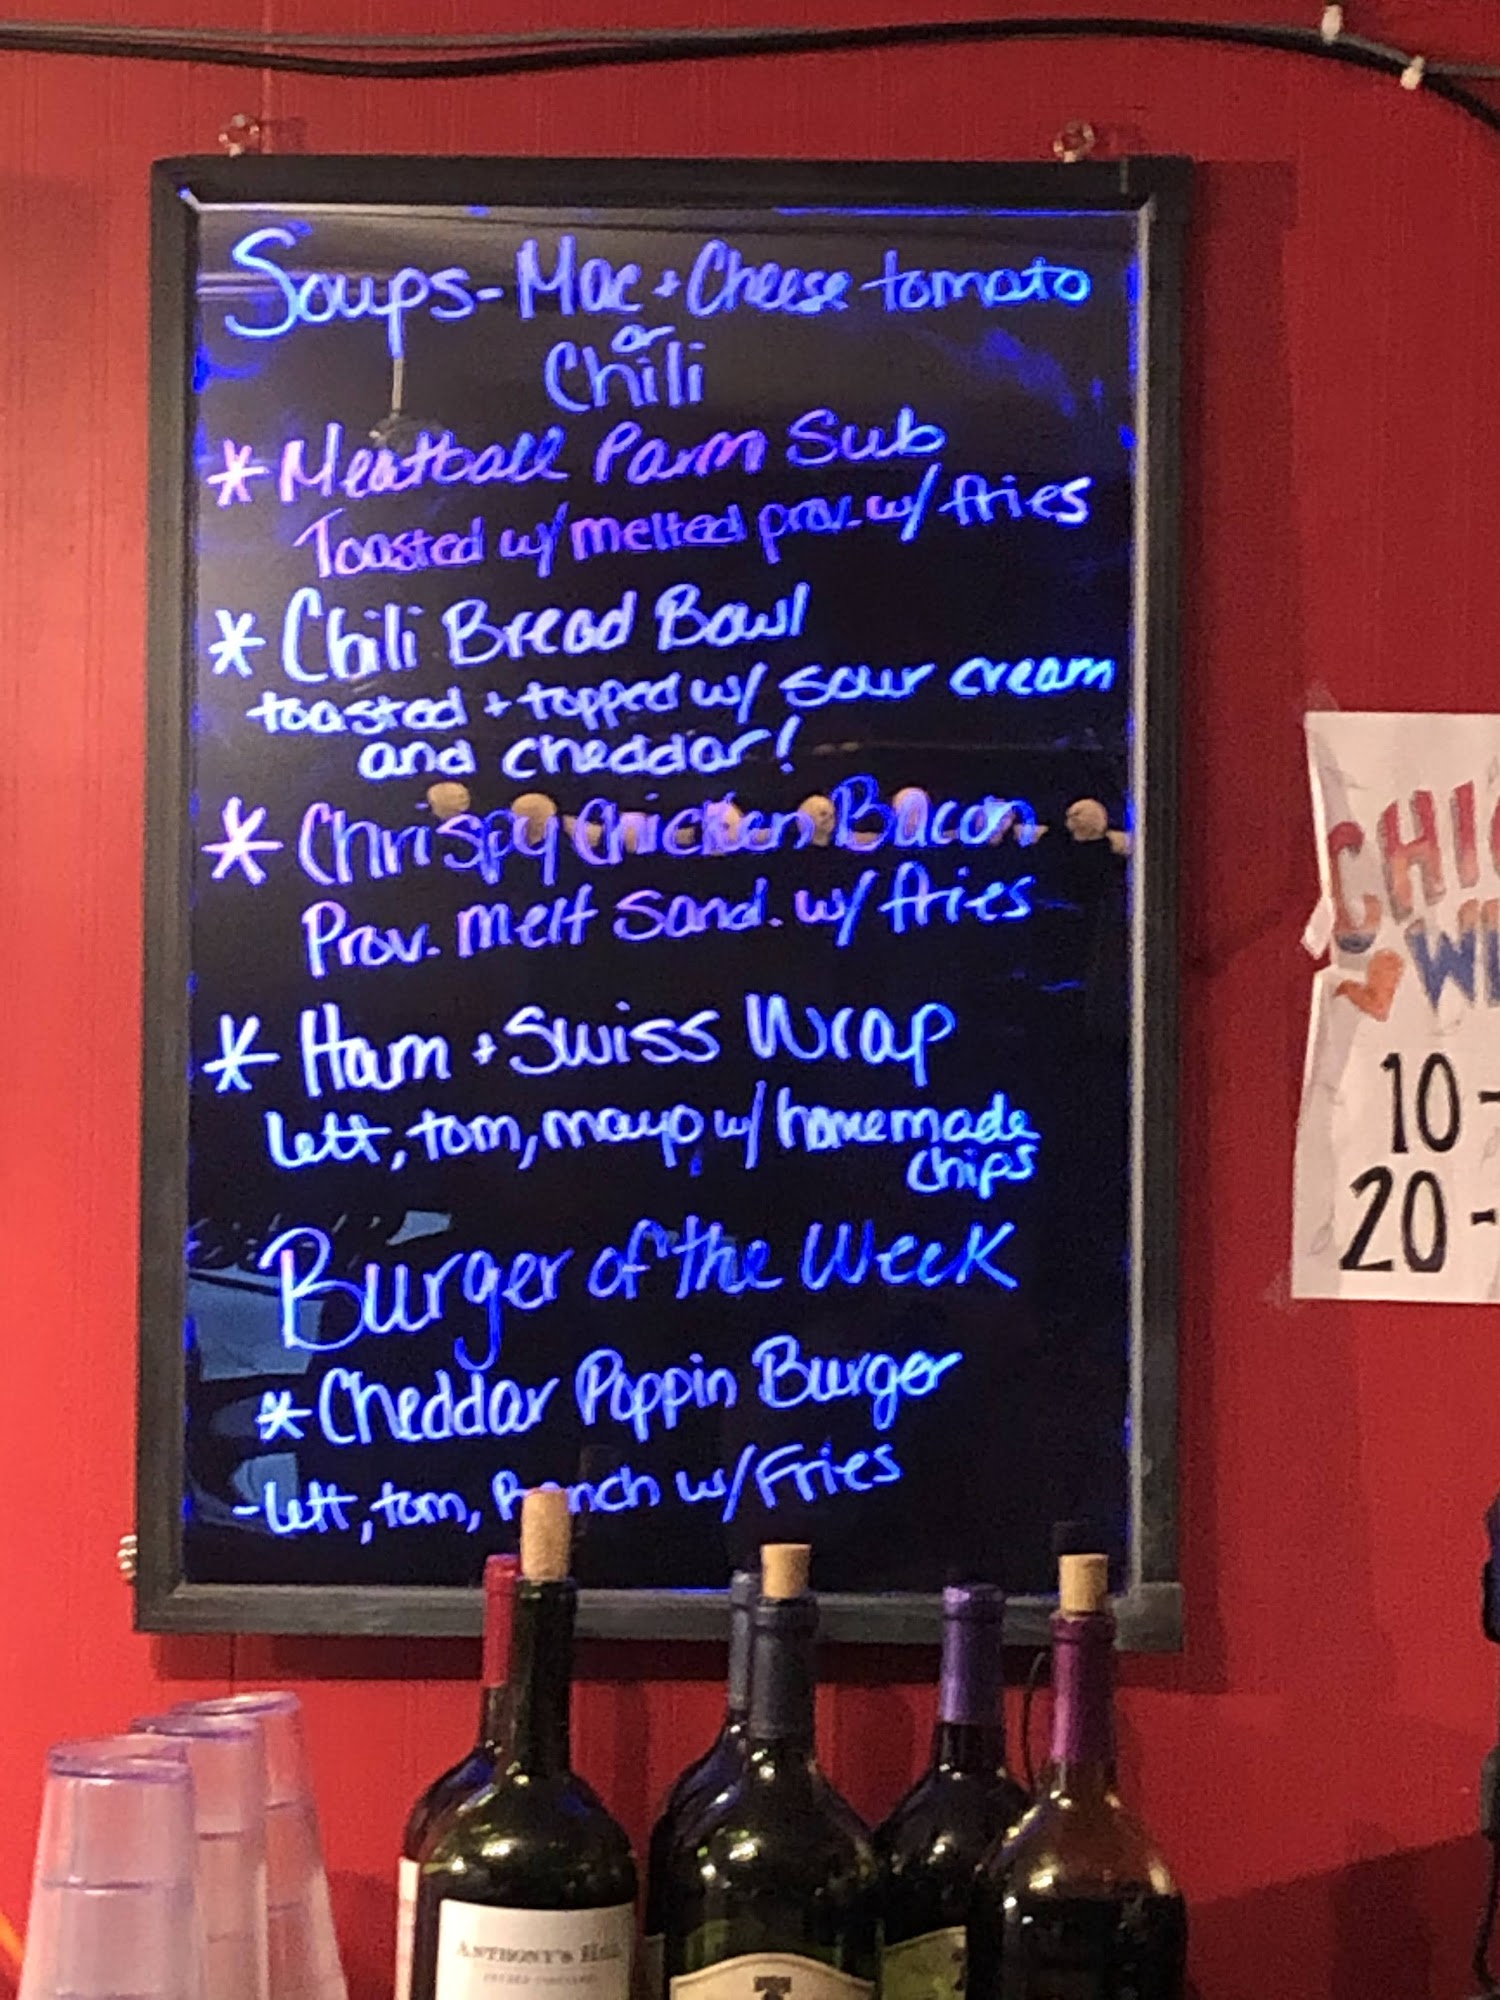 Soups - Mac + Cheese tomato
or
Chili
* Meatball Parm Sub
Toasted w/ melted prov. w/ fries
* Chili Bread Bowl
toasted + topped w/ sour cream
and cheddar!
* Chrispy Chicken Bacon
Prov. melt Sand. w/ fries
* Ham + Swiss Wrap
lett, tom, mayo w/ homemade
chips
Burger of the Week
* Cheddar Poppin Burger
- lett, tom, Ranch w/ Fries
10 -
20 -
ANTHONY'S